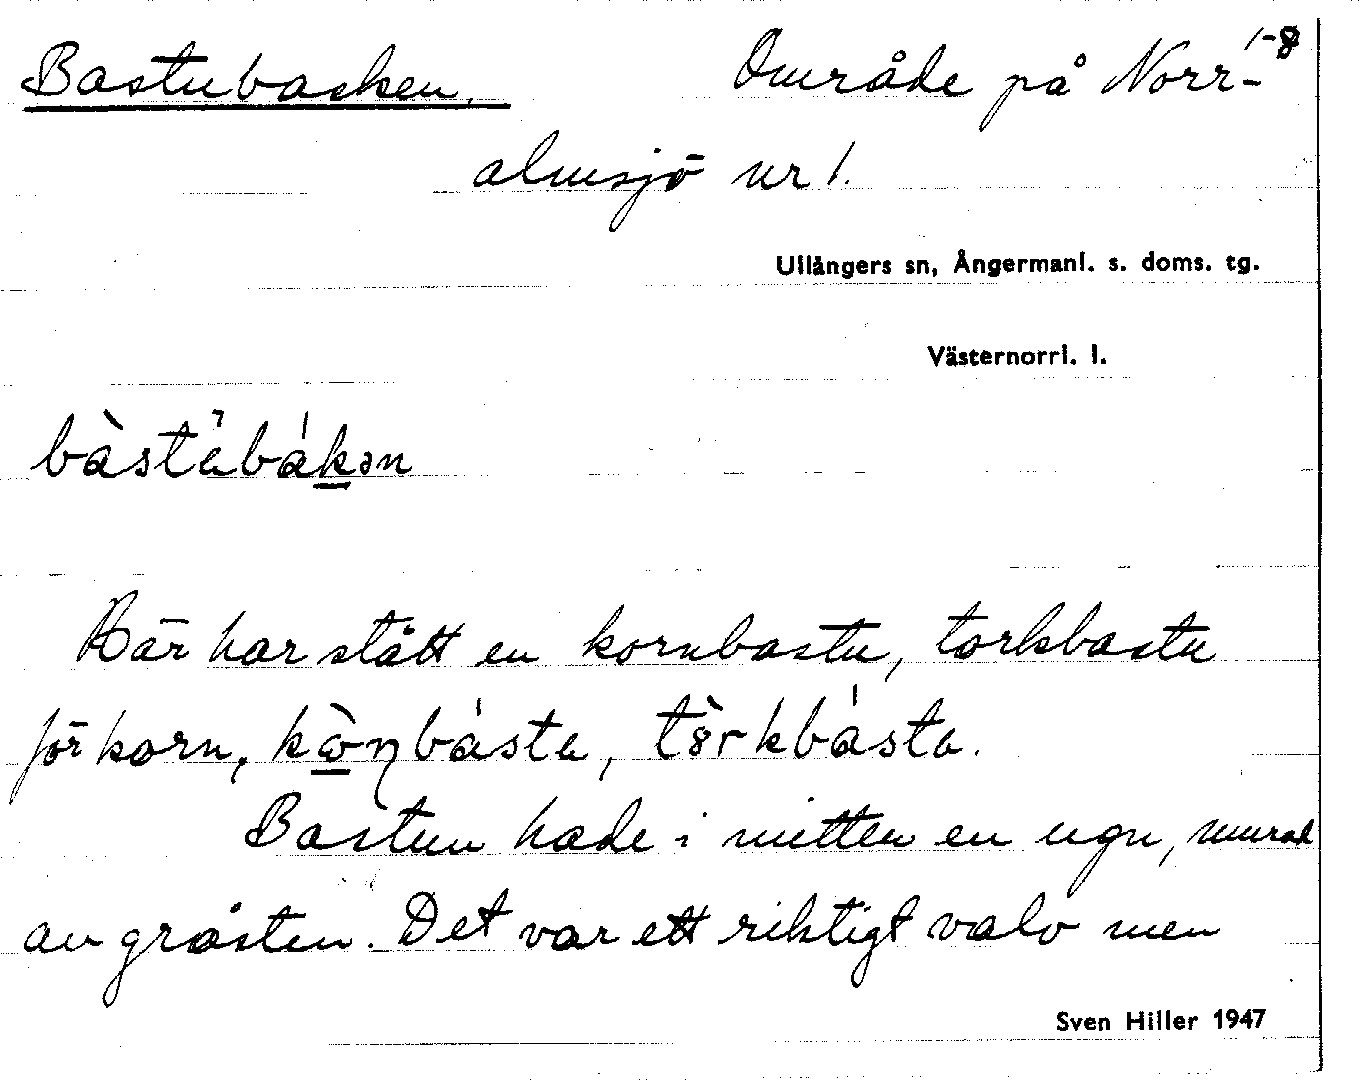 Bastubacken. Område på Norr- 1-8
almsjö nr 1.
Ullångers sn, Ångermanl. s. doms. tg.
Västernorrl. l.
bàstäbákən
Här har stått en kornbastu, torkbastu
för korn, kòɳbásta, tòrkbásta.
Bastun hade i mitten en ugn, murad
av gråsten. Det var ett riktigt valv men
Sven Hiller 1947